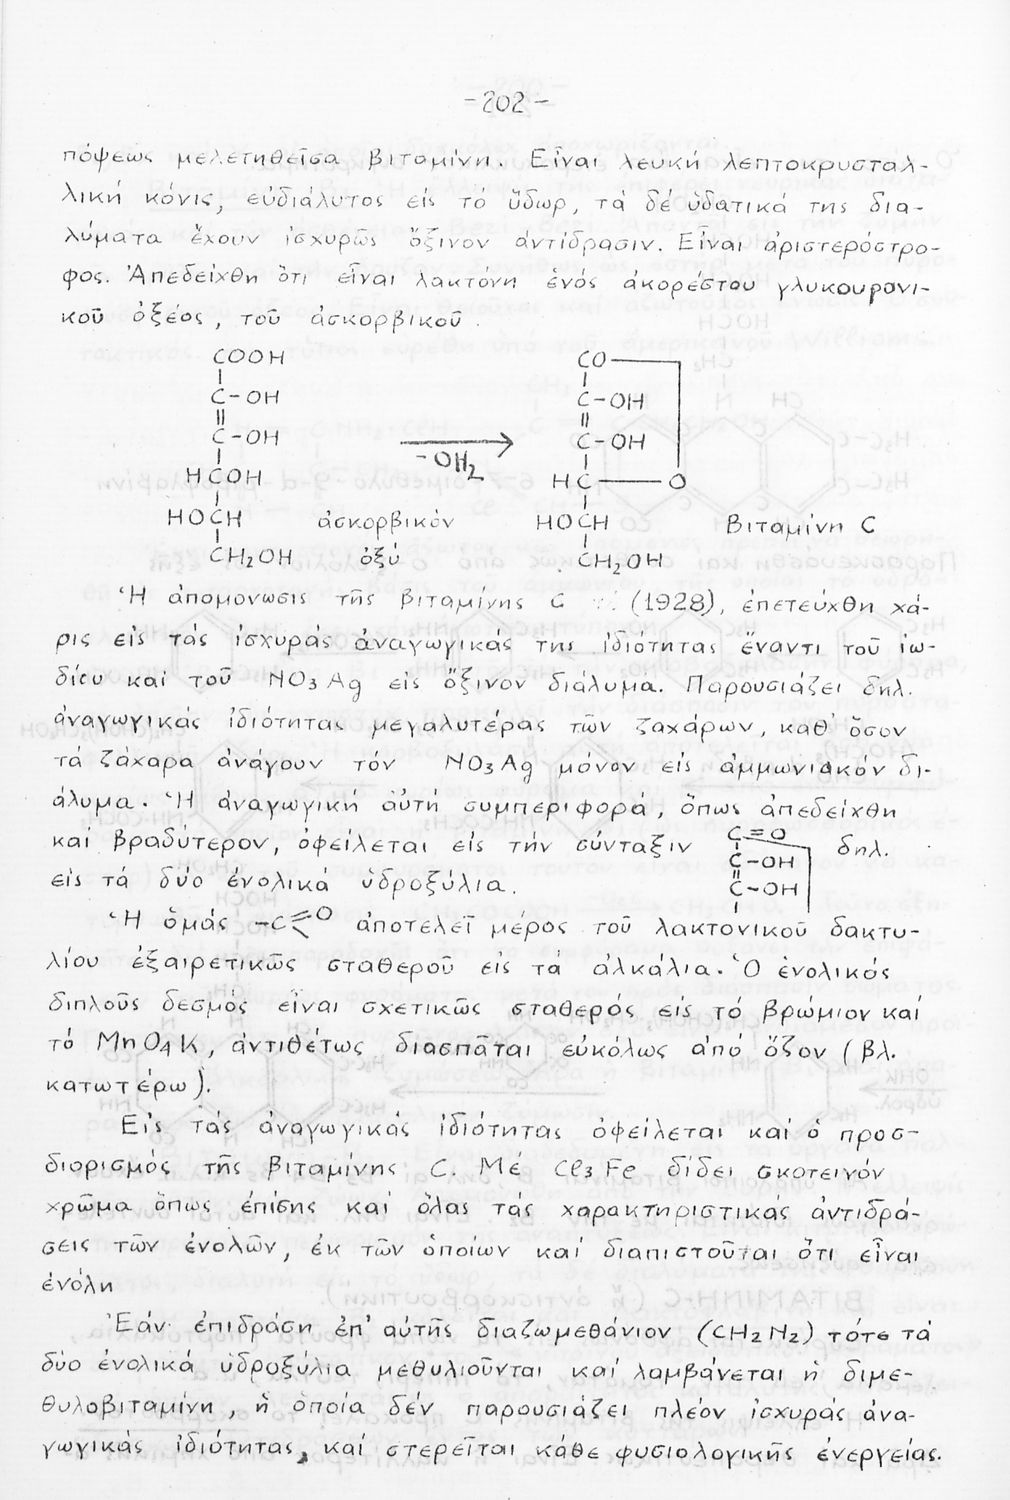 -202-
πόψεως μελετηθεῖσα βιταμίνη. Εἶναι λευκή λεπτοκρυσταλ-
λική κόνις, εὐδιάλυτος εἰς τό ὕδωρ, τά δέ ὑδατικά της δια-
λύματα ἔχουν ἰσχυρῶς ὄξινον ἀντίδρασιν. Εἶναι ἀριστερόστρο-
φος. Ἀπεδείχθη ὅτι εἶναι λακτόνη ἑνός ἀκορέστου γλυκουρονι-
κοῦ ὀξέος, τοῦ ἀσκορβικοῦ.
COOH CO
C-OH C-OH
C-OH C-OH
-OH₂
HCOH HC O
HOCH ἀσκορβικόν HOCH Βιταμίνη C
CH₂OH ὀξύ CH₂OH
Ἡ ἀπομόνωσις τῆς βιταμίνης C (1928), ἐπετεύχθη χά-
ρις εἰς τάς ἰσχυράς ἀναγωγικάς της ἰδιότητας ἔναντι τοῦ ἰω-
δίου καί τοῦ NO₃Ag εἰς ὄξινον διάλυμα. Παρουσιάζει δηλ.
ἀναγωγικάς ἰδιότητας μεγαλυτέρας τῶν ζαχάρων, καθ' ὅσον
τά ζάχαρα ἀνάγουν τόν NO₃Ag μόνον εἰς ἀμμωνιακόν δι-
άλυμα. Ἡ ἀναγωγική αὐτή συμπεριφορά, ὅπως ἀπεδείχθη
καί βραδύτερον, ὀφείλεται εἰς τήν σύνταξιν C=O δηλ.
C-OH
εἰς τά δύο ἐνολικά ὑδροξύλια. C-OH
Ἡ ὁμάς -C=O ἀποτελεῖ μέρος τοῦ λακτονικοῦ δακτυ-
λίου ἐξαιρετικῶς σταθεροῦ εἰς τά ἀλκάλια. Ὁ ἐνολικός
διπλοῦς δεσμός εἶναι σχετικῶς σταθερός εἰς τό βρώμιον καί
τό MnO₄K, ἀντιθέτως διασπᾶται εὐκόλως ἀπό ὄζον (βλ.
κατωτέρω).
Εἰς τάς ἀναγωγικάς ἰδιότητας ὀφείλεται καί ὁ προσ-
διορισμός τῆς βιταμίνης C. Μέ Cl₃Fe δίδει σκοτεινόν
χρῶμα ὅπως ἐπίσης καί ὅλας τάς χαρακτηριστικάς ἀντιδρά-
σεις τῶν ἐνολῶν, ἐκ τῶν ὁποίων καί διαπιστοῦται ὅτι εἶναι
ἐνόλη
Ἐάν ἐπιδράση ἐπ' αὐτῆς διαζωμεθάνιον (CH₂N₂) τότε τά
δύο ἐνολικά ὑδροξύλια μεθυλιοῦνται καί λαμβάνεται ἡ διμε-
θυλοβιταμίνη, ἡ ὁποία δέν παρουσιάζει πλέον ἰσχυράς ἀνα-
γωγικάς ἰδιότητας, καί στερεῖται κάθε φυσιολογικῆς ἐνεργείας.